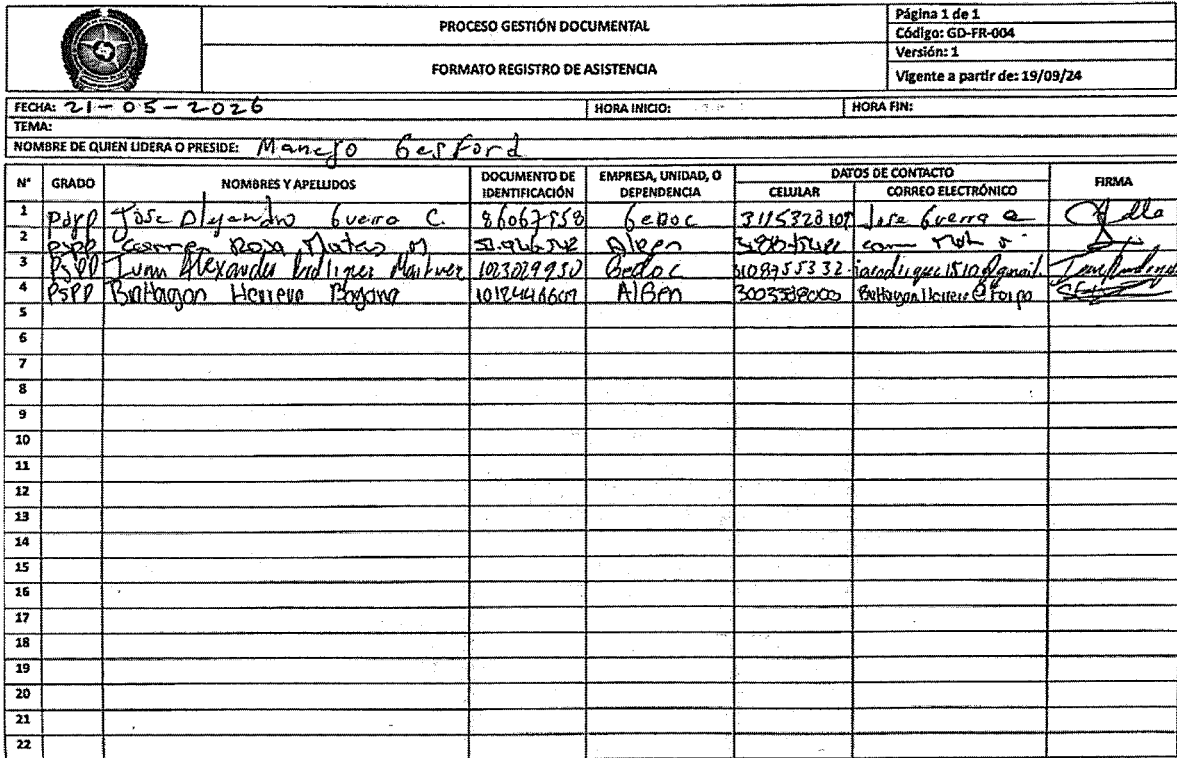 PROCESO GESTIÓN DOCUMENTAL
FORMATO REGISTRO DE ASISTENCIA
Página 1 de 1
Código: GD-FR-004
Versión: 1
Vigente a partir de: 19/09/24
FECHA: 21-05-2026 HORA INICIO: HORA FIN:
TEMA:
NOMBRE DE QUIEN LIDERA O PRESIDE: Manejo Gesford
N° GRADO NOMBRES Y APELLIDOS DOCUMENTO DE IDENTIFICACIÓN EMPRESA, UNIDAD, O DEPENDENCIA DATOS DE CONTACTO CELULAR CORREO ELECTRÓNICO FIRMA
1 Jose Alejandro Guerra C. 86067558 Gedoc Jose Guerra
2 Carmen Rosa Mateus M Algen
3 PSPD Ivan Alexander Martinez 1023029950 Gedoc 3108755332
4 PSPD Brattaygan Herrera 1012446607 Algen
5
6
7
8
9
10
11
12
13
14
15
16
17
18
19
20
21
22